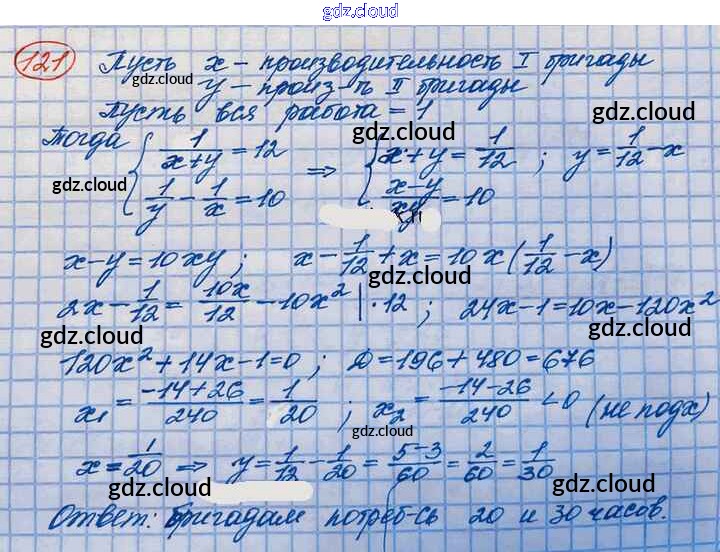 gdz.cloud
121 Пусть x – производительность I бригады
gdz.cloud
y – произ-ть II бригады
gdz.cloud
Пусть вся работа = 1
Тогда { 1/(x+y) = 12 ⇒ { x+y = 1/12 ; y = 1/12 - x
gdz.cloud gdz.cloud
{ 1/y - 1/x = 10 { (x-y)/xy = 10
gdz.cloud gdz.cloud
x-y = 10xy ; x - 1/12 + x = 10x(1/12 - x)
gdz.cloud
2x - 1/12 = 10x/12 - 10x² | · 12 ; 24x-1 = 10x-120x²
gdz.cloud gdz.cloud
120x² + 14x - 1 = 0 ; D = 196 + 480 = 676
x₁ = (-14+26)/240 = 1/20 ; x₂ = (-14-26)/240 < 0 (не подх)
gdz.cloud gdz.cloud
x = 1/20 ⇒ y = 1/12 - 1/20 = (5-3)/60 = 2/60 = 1/30
gdz.cloud gdz.cloud gdz.cloud
Ответ: бригадам потреб-сь 20 и 30 часов.